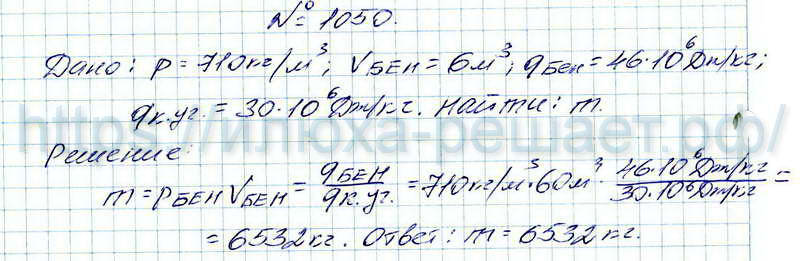 № 1050.
Дано: ρ = 710кг/м³; Vбен = 6м³; qбен = 46·10⁶ Дж/кг;
qк.уг. = 30·10⁶ Дж/кг. Найти: m.
https://илюха-решает.рф/
Решение:
m = ρбен Vбен = qбен/qк.уг. = 710кг/м³·60м³ · 46·10⁶Дж/кг/30·10⁶Дж/кг =
= 6532кг. Ответ: m = 6532кг.